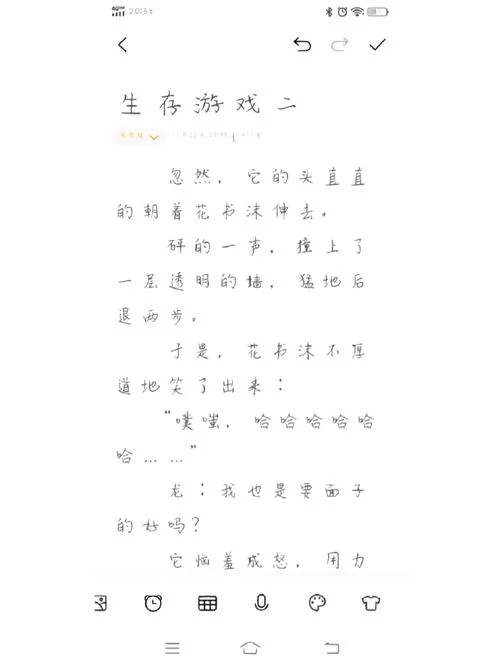 生存游戏二
忽然，它的头直直
的朝着花书沫伸去。
砰的一声，撞上了
一层透明的墙，猛地后
退两步。
于是，花书沫不厚
道地笑了出来：
“噗嗤，哈哈哈哈哈
哈……”
龙：我也是要面子
的好吗？
它恼羞成怒，用力